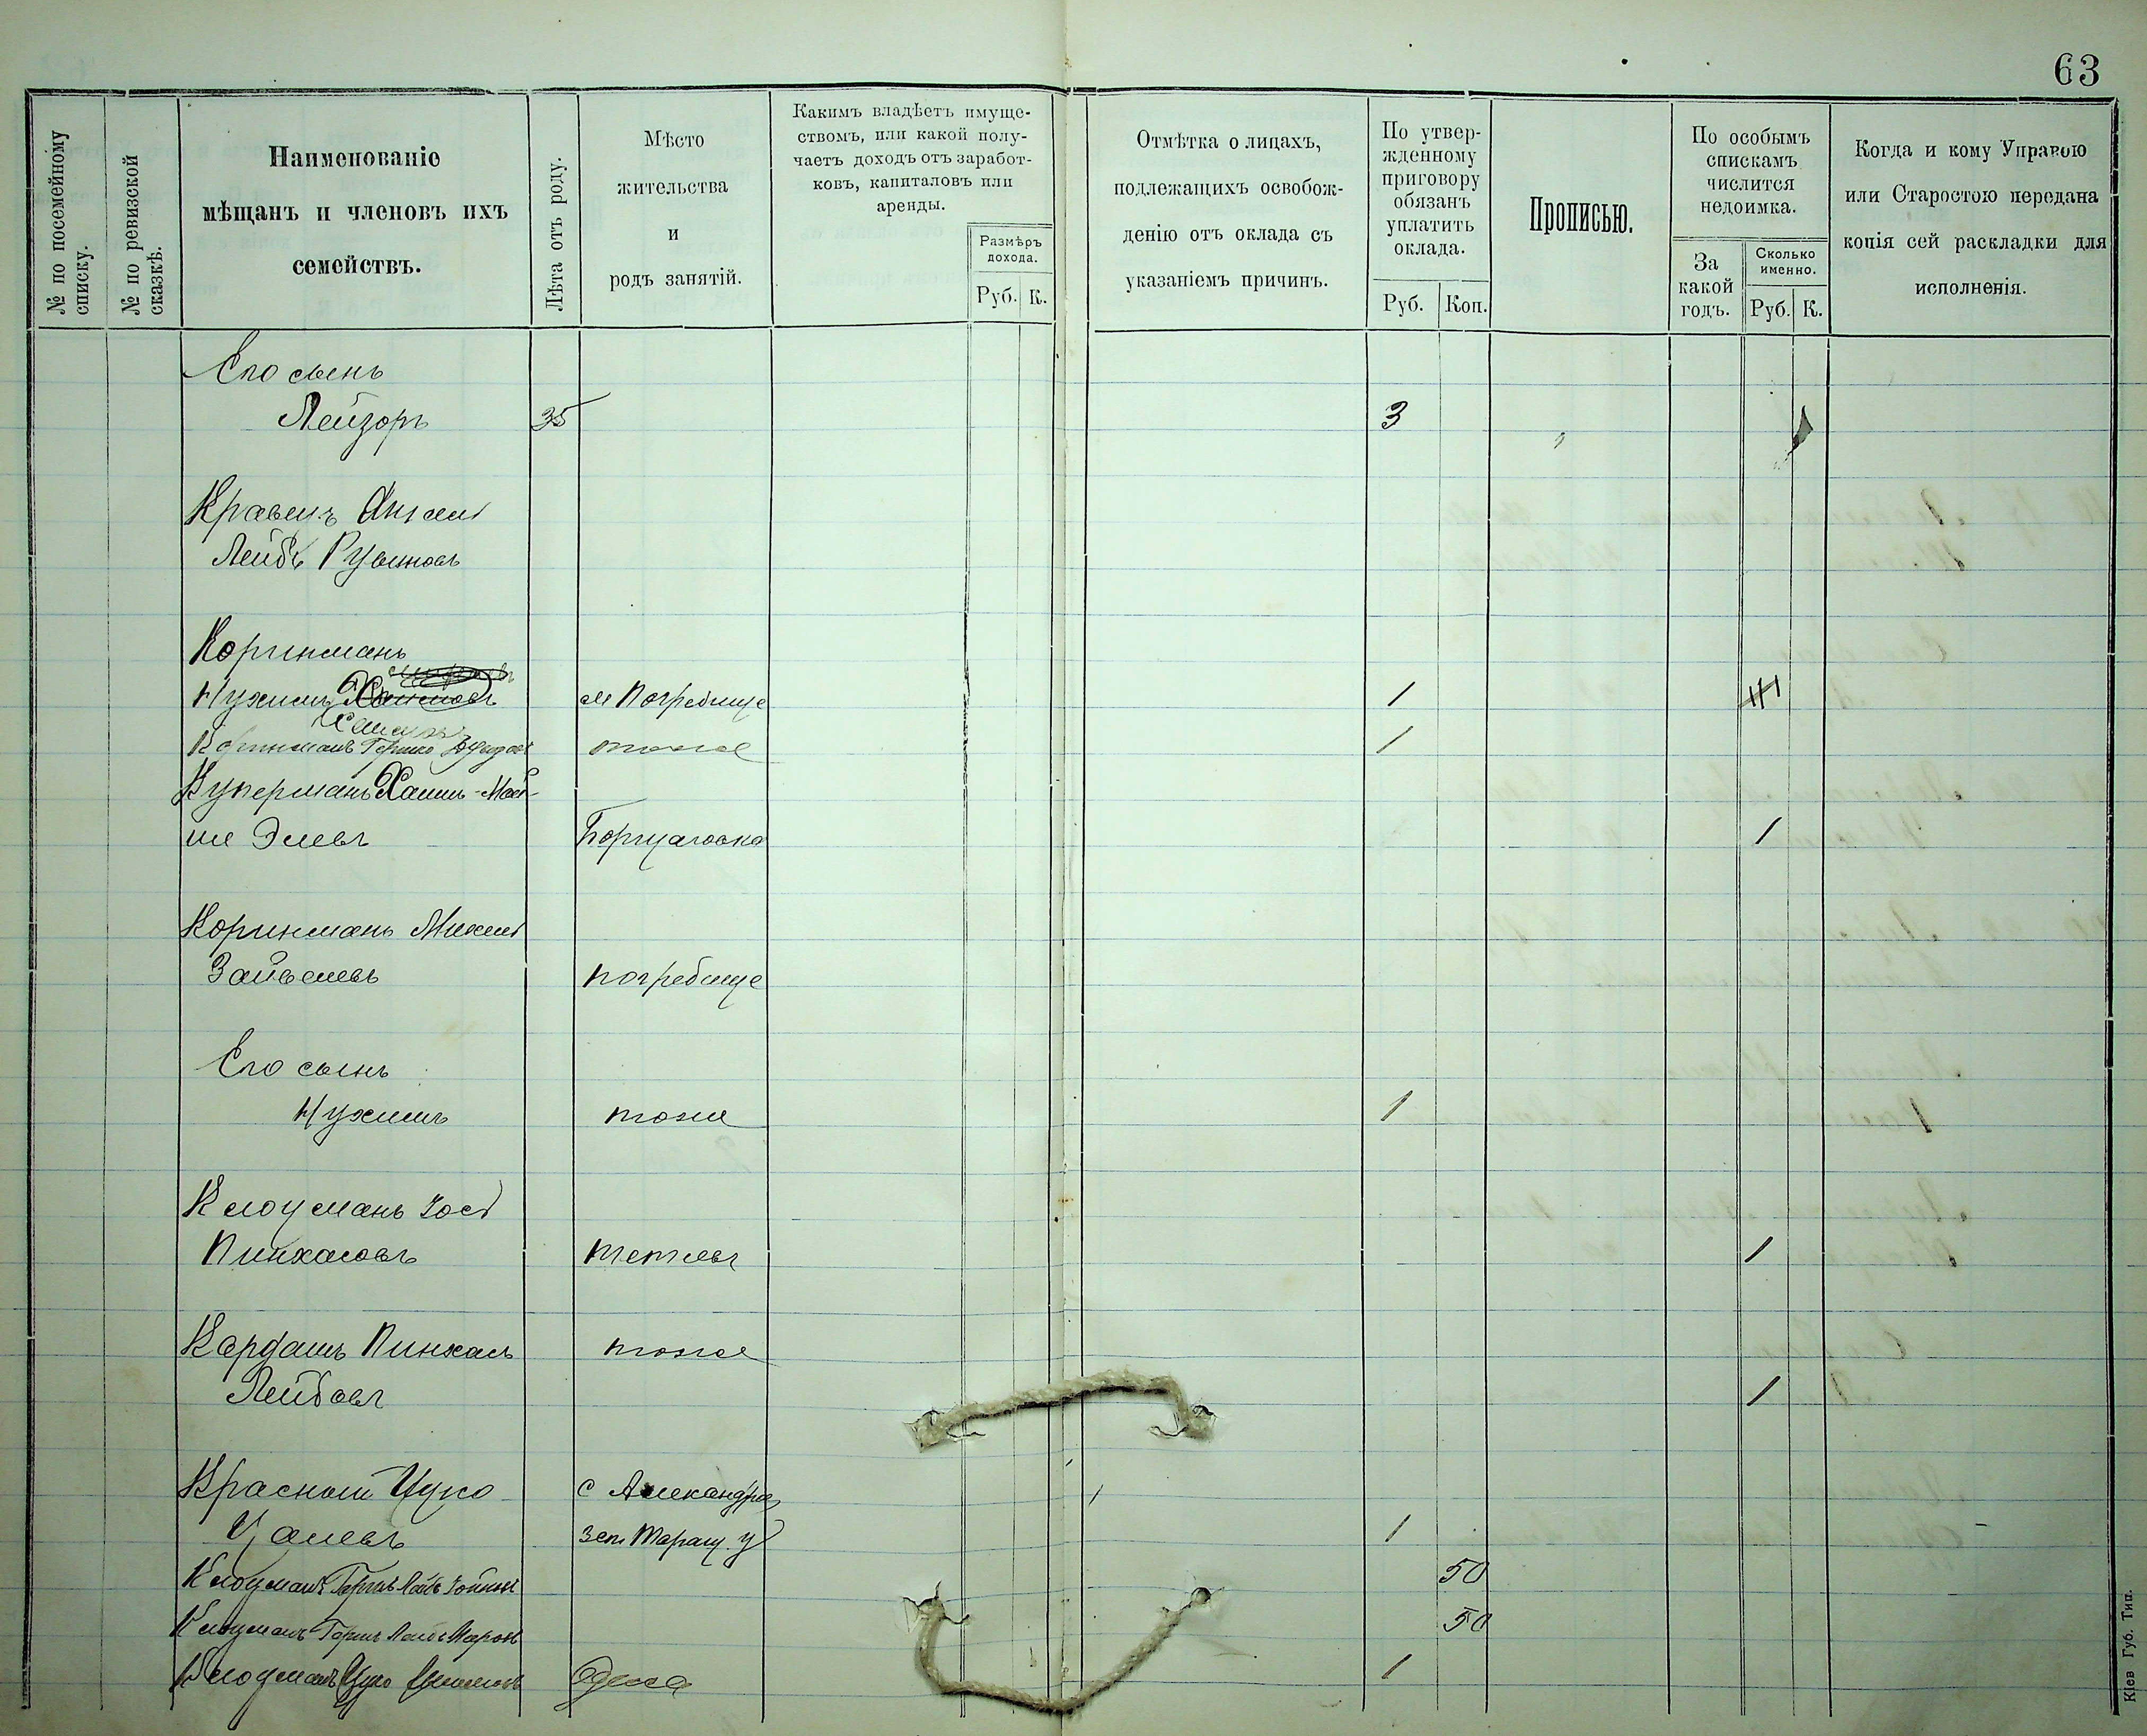 63
№ по посемейному списку.
№ по ревизской сказкѣ.
Наименованіе
мѣщанъ и членовъ ихъ
семействъ.
Лѣта отъ роду.
Мѣсто
жительства
и
родъ занятій.
Какимъ владѣетъ имуще-
ствомъ, или какой полу-
чаетъ доходъ отъ заработ-
ковъ, капиталовъ или
аренды.
Размѣръ
дохода.
Руб. К.
Отмѣтка о лицахъ,
подлежащихъ освобож-
денію отъ оклада съ
указаніемъ причинъ.
По утвер-
жденному
приговору
обязанъ
уплатить
оклада.
Руб. Коп.
Прописью.
По особымъ
спискамъ
числится
недоимка.
За
какой
годъ.
Сколько
именно.
Руб. К.
Когда и кому Управою
или Старостою передана
копія сей раскладки для
исполненія.
Его сынъ
Лейзоръ 35 3
Кравецъ
Лейбъ Рувиновъ
Коринманъ
Нухимъ м Погребище 1
Хаимовъ
Коринманъ Гершко тоже 1
Куперманъ Хаимъ-Мой-
ше Элевъ Борщаговка 1
Коринманъ Михель
Зайвелевъ Погребище
Его сынъ
Нухимъ тоже 1
Клоцманъ Іось
Пинхасовъ Тетіевъ 1
Кардашъ Пинхасъ тоже
Лейбовъ 1
Красный Ицко с Александро
Цалевъ Таращ. у 1
Клоцманъ 50
Клоцманъ 50
Клоцманъ Ицко Одесса 1
Кіев Губ. Тип.